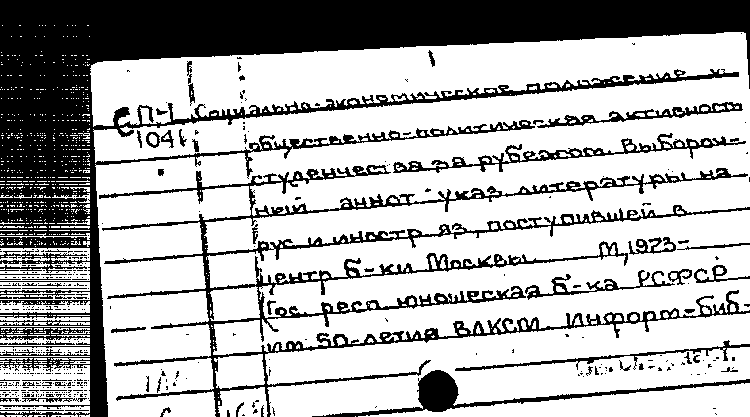 С П-1 Социально-экономическое положение и
1041 общественно-политическая активность
студенчества за рубежом. Выбороч-
ный аннот. указ. литературы на
рус и иностр яз, поступившей в
центр б-ки Москвы. М, 1973-
Гос. респ юношеская б-ка РСФСР
им. 50-летия ВЛКСМ. Информ-биб-